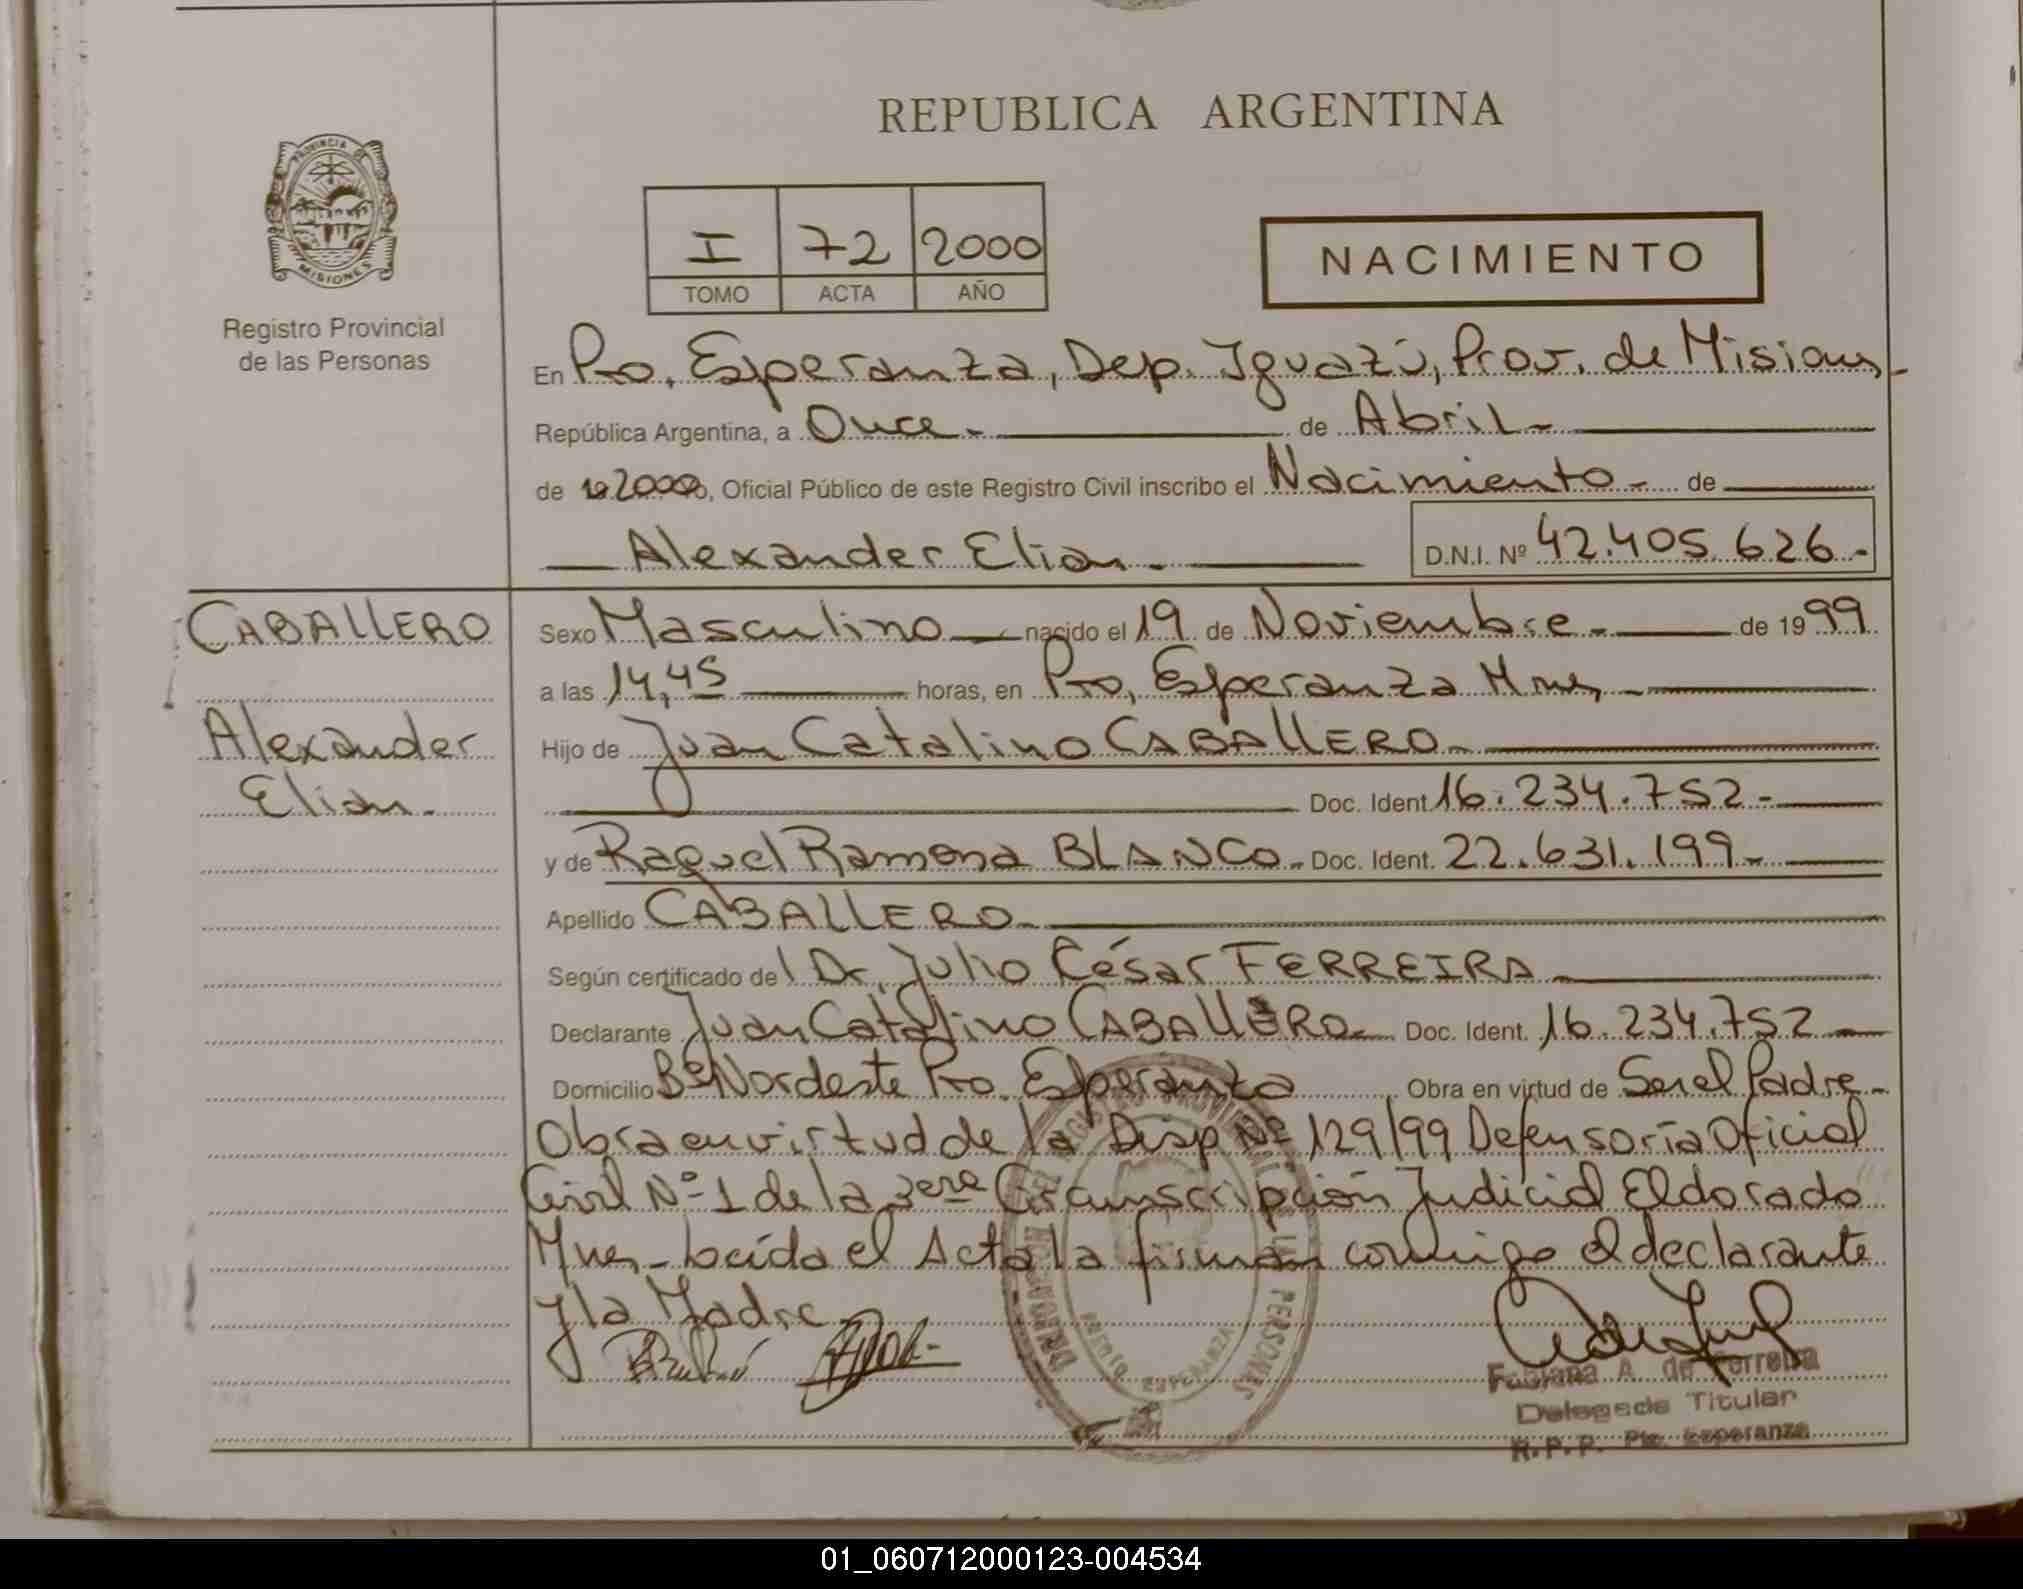 REPUBLICA ARGENTINA
PROVINCIA DE
MISIONES
Registro Provincial
de las Personas
I 72 2000
TOMO ACTA AÑO
NACIMIENTO
En Pto. Esperanza, Dep. Iguazú, Prov. de Misiones
República Argentina, a Once.- de Abril.-
de 2000, Oficial Público de este Registro Civil inscribo el Nacimiento.- de
Alexander Elian.- D.N.I. Nº 42.405.626.-
CABALLERO
Alexander
Elian.-
Sexo Masculino nacido el 19 de Noviembre.- de 1999
a las 14,45 horas, en Pto, Esperanza Mnes.-
Hijo de Juan Catalino CABALLERO.-
Doc. Ident. 16.234.752.-
y de Raquel Ramona BLANCO.- Doc. Ident. 22.631.199.-
Apellido CABALLERO.-
Según certificado del Dr. Julio César FERREIRA.-
Declarante Juan Catalino CABALLERO.- Doc. Ident. 16.234.752.-
Domicilio Bº Nordeste Pto. Esperanza Obra en virtud de Ser el Padre.-
Obra en virtud de la Disp Nº 129/99 Defensoría Oficial
Civil Nº 1 de la 3era Circunscripción Judicial Eldorado
Mnes.- Leída el Acta la firman conmigo el declarante
y la Madre
Fabiana A. de Ferreira
Delegada Titular
R.P.P. Pto. Esperanza
01_060712000123-004534